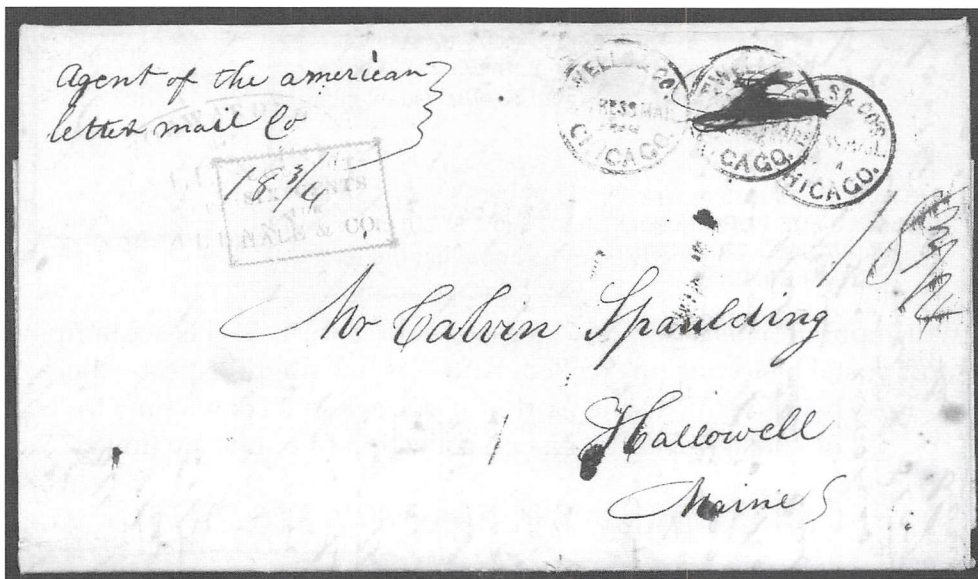 Agent of the american
letter mail Co
18 3/4
CENTS
HALE & CO.
WELLS & CO.
CHICAGO.
WELL
CAGO.
S & CO'S
CHICAGO.
18 3/4
Mr Calvin Spaulding
Hallowell
Maine